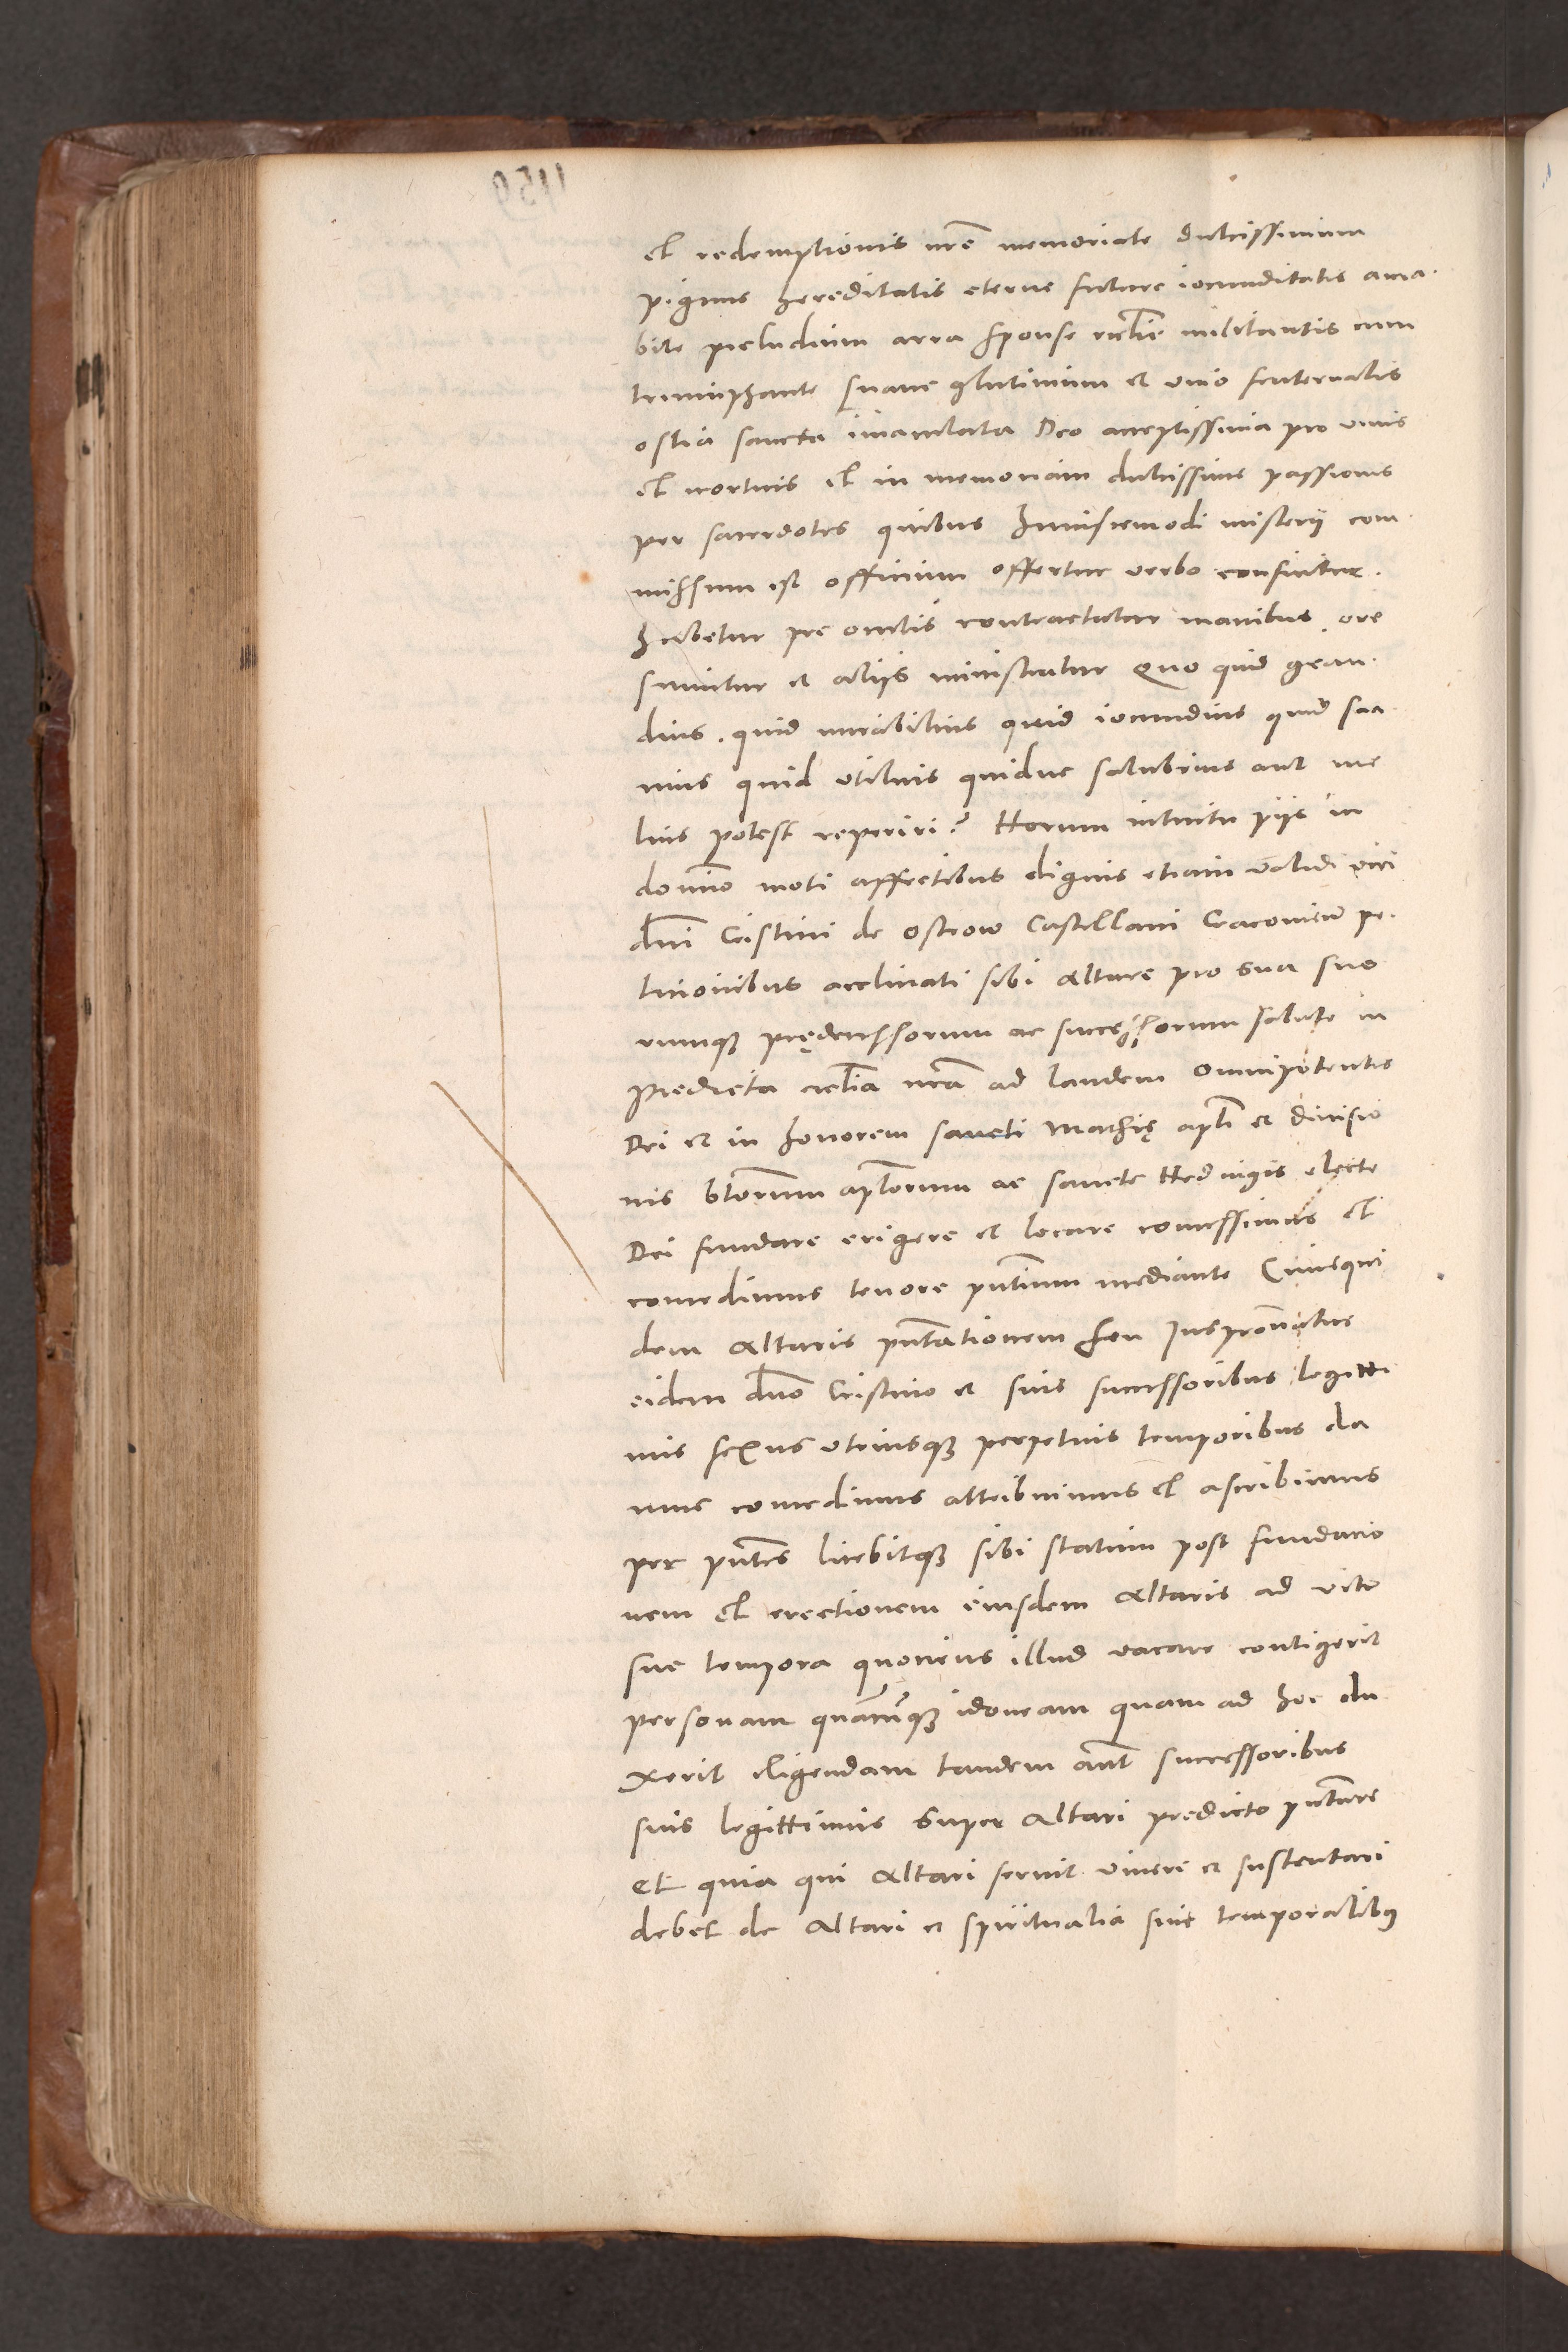 et redemptionis nr̄e memoriale dulcissimum
pignus hereditatis eterne future iocunditatis ama-
bile preludium arra sponse eccl̄ie militantis cum
triumphante suave glutinium et unio fraternalis
ostia sancta imaculata Deo acceptissima pro vivis
et mortuis et in memoriam dulcissime passionis
per sacerdotes quibus huiuscemodi misterij com-
missum est officium offertur verbo conficitur.
habetur pre oculis contractatur manibus, ore
sumitur et alijs ministratur Quo quid gran-
dius. quid mirabilius quid iocundius quid sua-
uius quid utilius quidue salubrius aut me
lius potest reperiri? Horum intuitu pijs in
domino moti affectibus dignis etiam validi viri
dn̄i Cristini de Ostrow Castellani Cracovien̄ pe-
ticionibus acclinati sibi Altare pro sua suo
rumque pręcessorum ac successorum salute in
predicta eccl̄ia nr̄a ad laudem omnipotentis
Dei et in honorem sancti Mathię apl̄i et divisio
nis bt̄orum apl̄orum ac sancte Hedvigis electe
Dei fundare erigere et locare concessimus et
concedimus tenore pn̄tium mediante Cuiusqui
dem Altaris pn̄tationem seu Juspron̄atus
eidem dn̄o Cristino et suis successoribus legitti
mis sexus utriusque perpetuis temporibus da
mus concedimus attribuimus et ascribimus
per pn̄tes licebitque sibi statim post fundacio
nem et erectionem eiusdem Altaris ad vite
sue tempora quociens illud vacare contigerit
personam quamcunque idoneam quam ad hoc du
xerit eligendam tandem aut̄ successoribus
suis legittimis super Altari predicto pn̄tare
et quia qui Altari servit vivere et sustentari
debet de Altari et spiritualia sine temporalibus